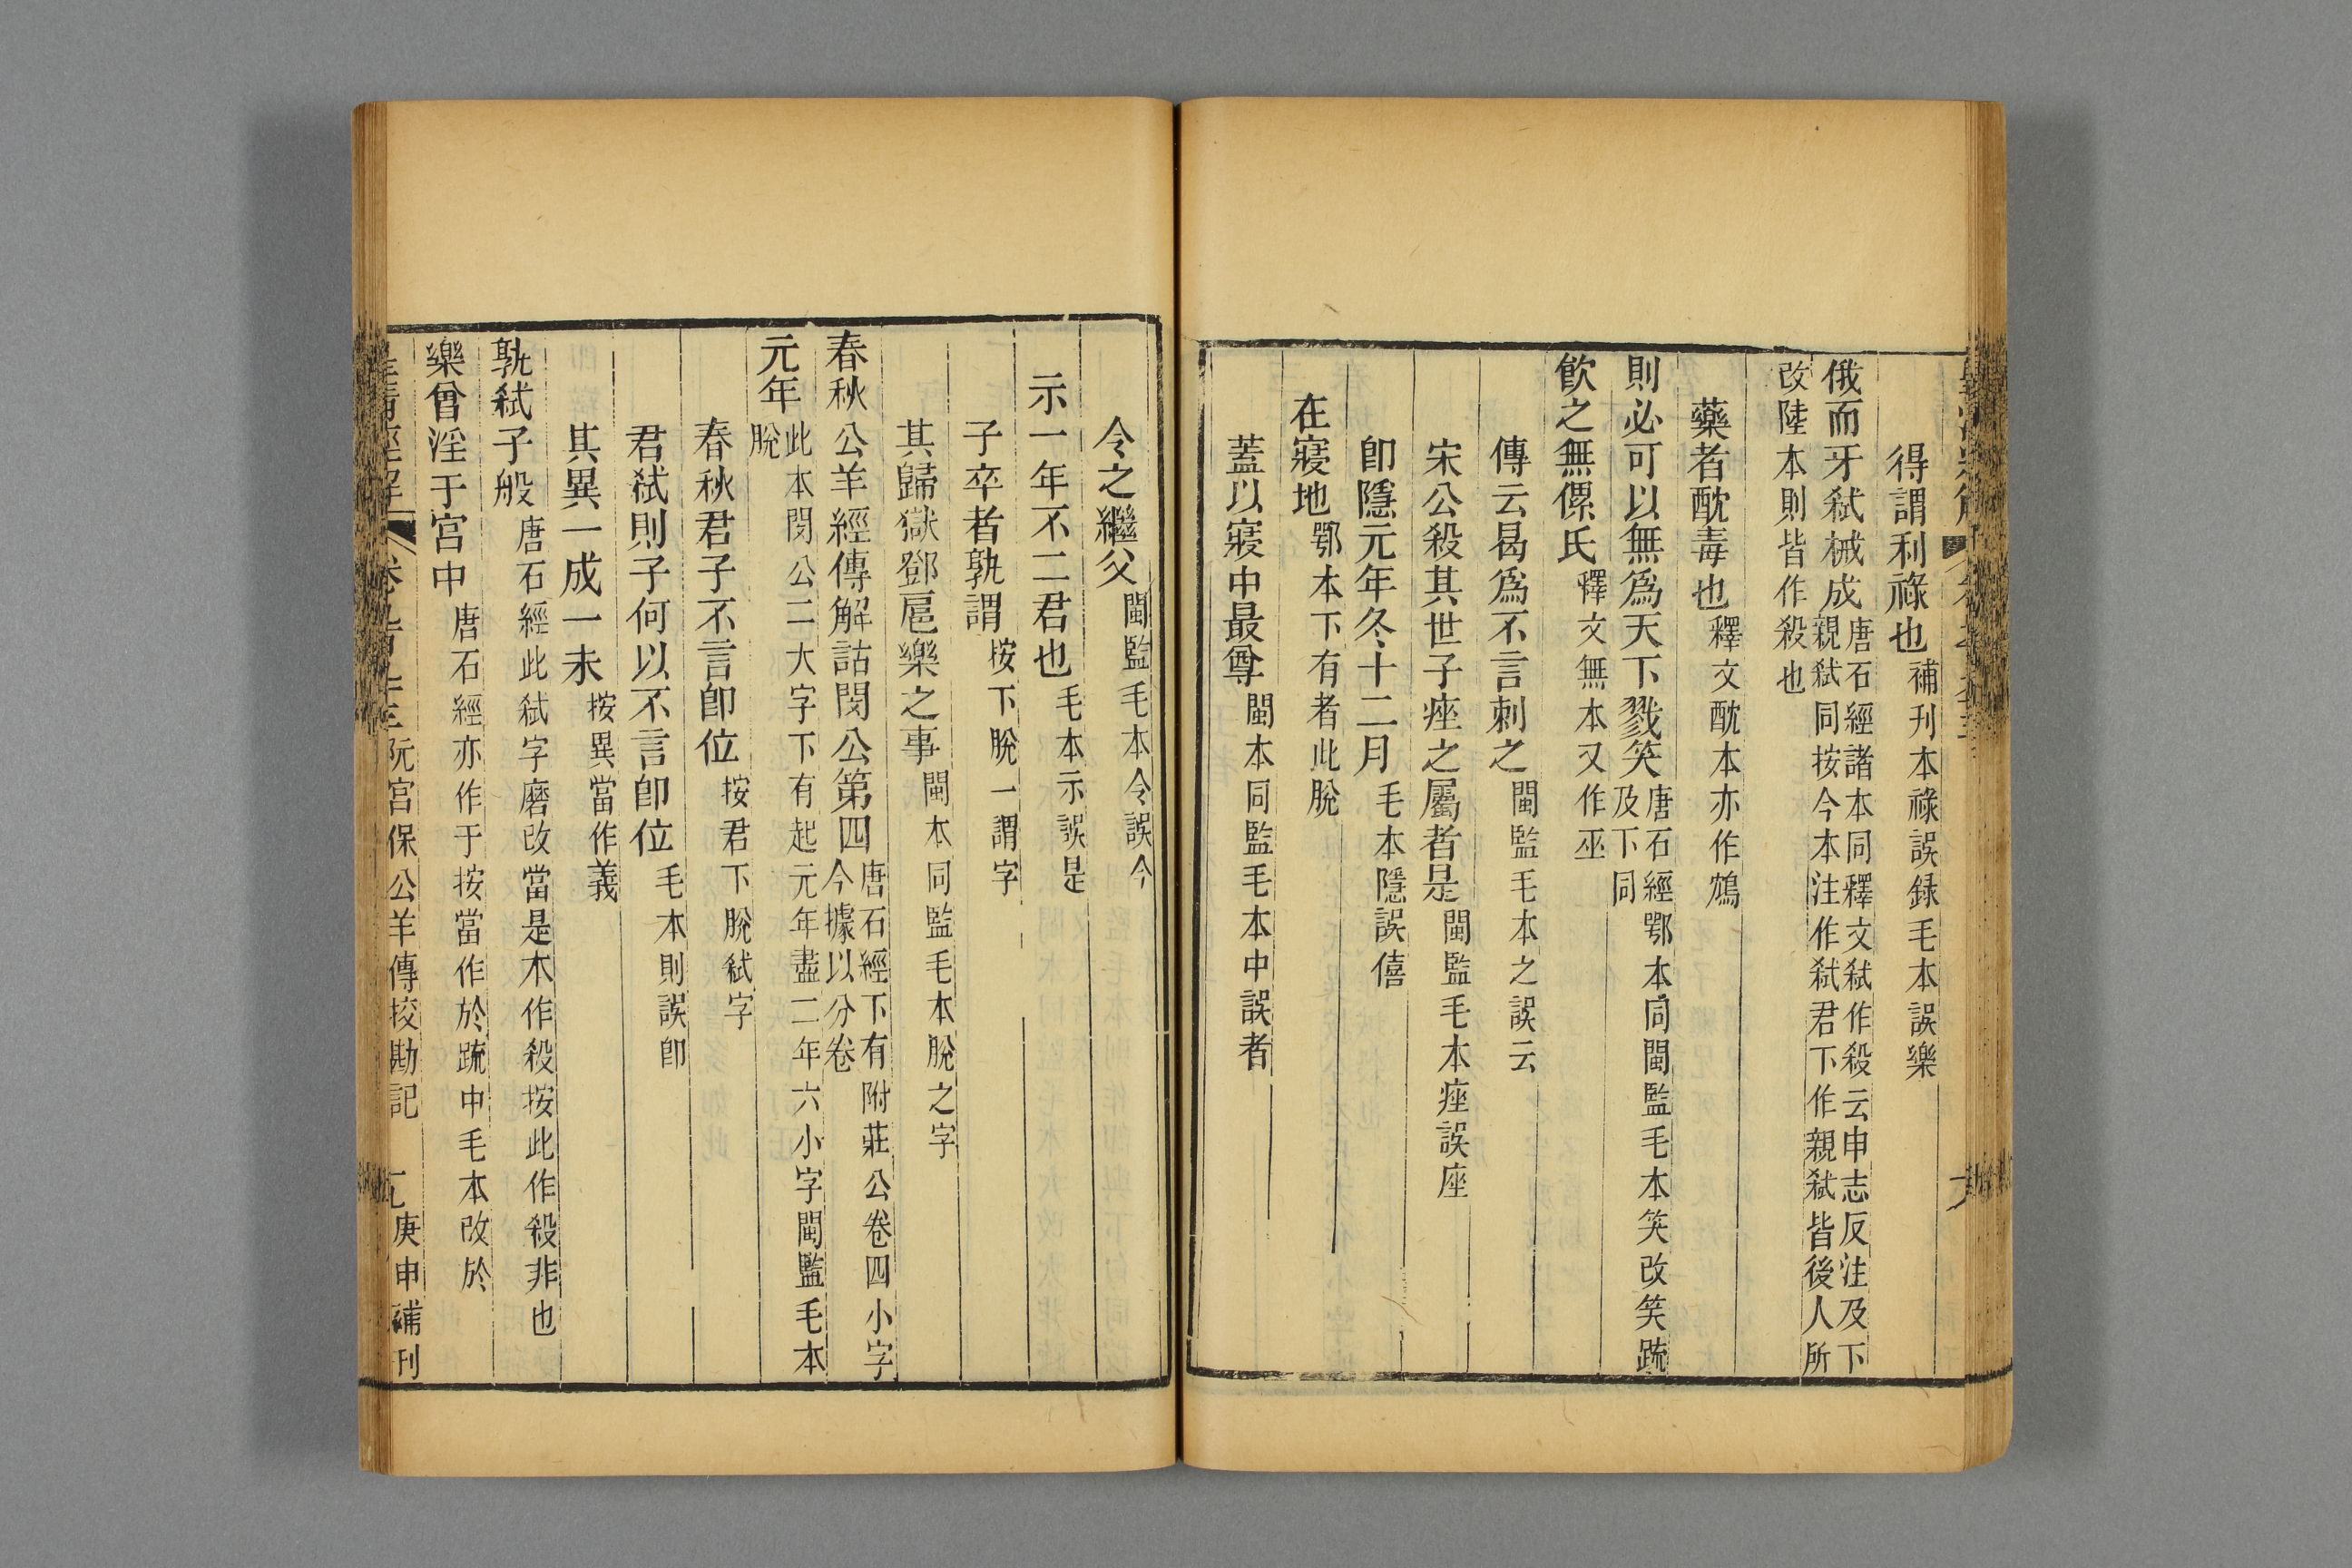 得謂利祿也補刊本祿誤録毛本誤樂
俄而牙弑械成唐石經諸本同釋文弑作殺云申志反注及下
親弑同按今本注作弑君下作親弑皆後人所
改陸本則皆作殺也
藥者酖毒也釋文酖本亦作鴆
則必可以無爲天下戮笑唐石經鄂本同閩監毛本笑改笑䟽
及下同
飮之無傫氏釋文無本又作巫
傳云曷爲不言刺之閩監毛本之誤云
宋公殺其世子痤之屬者是閩監毛本痤誤座
卽隱元年冬十二月毛本隱誤僖
在寢地鄂本下有者此脫
蓋以寢中最尊閩本同監毛本中誤者
令之繼父閩監毛本令誤今
示一年不二君也毛本示誤是
子卒者孰謂按下脫一謂字
其歸獄鄧扈樂之事閩本同監毛本脫之字
春秋公羊經傳解詁閔公第四唐石經下有附莊公卷四小字
今據以分卷
元年此本閔公二大字下有起元年盡二年六小字閩監毛本
脫
春秋君子不言卽位按君下脫弑字
君弑則子何以不言卽位毛本則誤卽
其異一成一未按異當作義
孰弑子般唐石經此弑字磨改當是本作殺按此作殺非也
樂曾淫于宮中唐石經亦作于按當作於䟽中毛本改於
皇清經解 阮宮保公羊傳挍勘記 庚申補刊